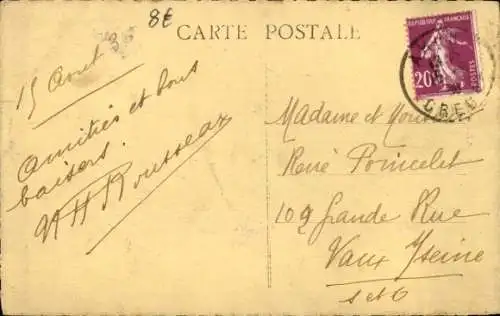 8€
CARTE POSTALE
REPUBLIQUE FRANÇAISE
20c
POSTES
CREU
15 Aout
Amitiés et bons
baisers.
Rousseau
Madame et Monsieur
René Poincelet
109 Grande Rue
Vaux s/Seine
S et O